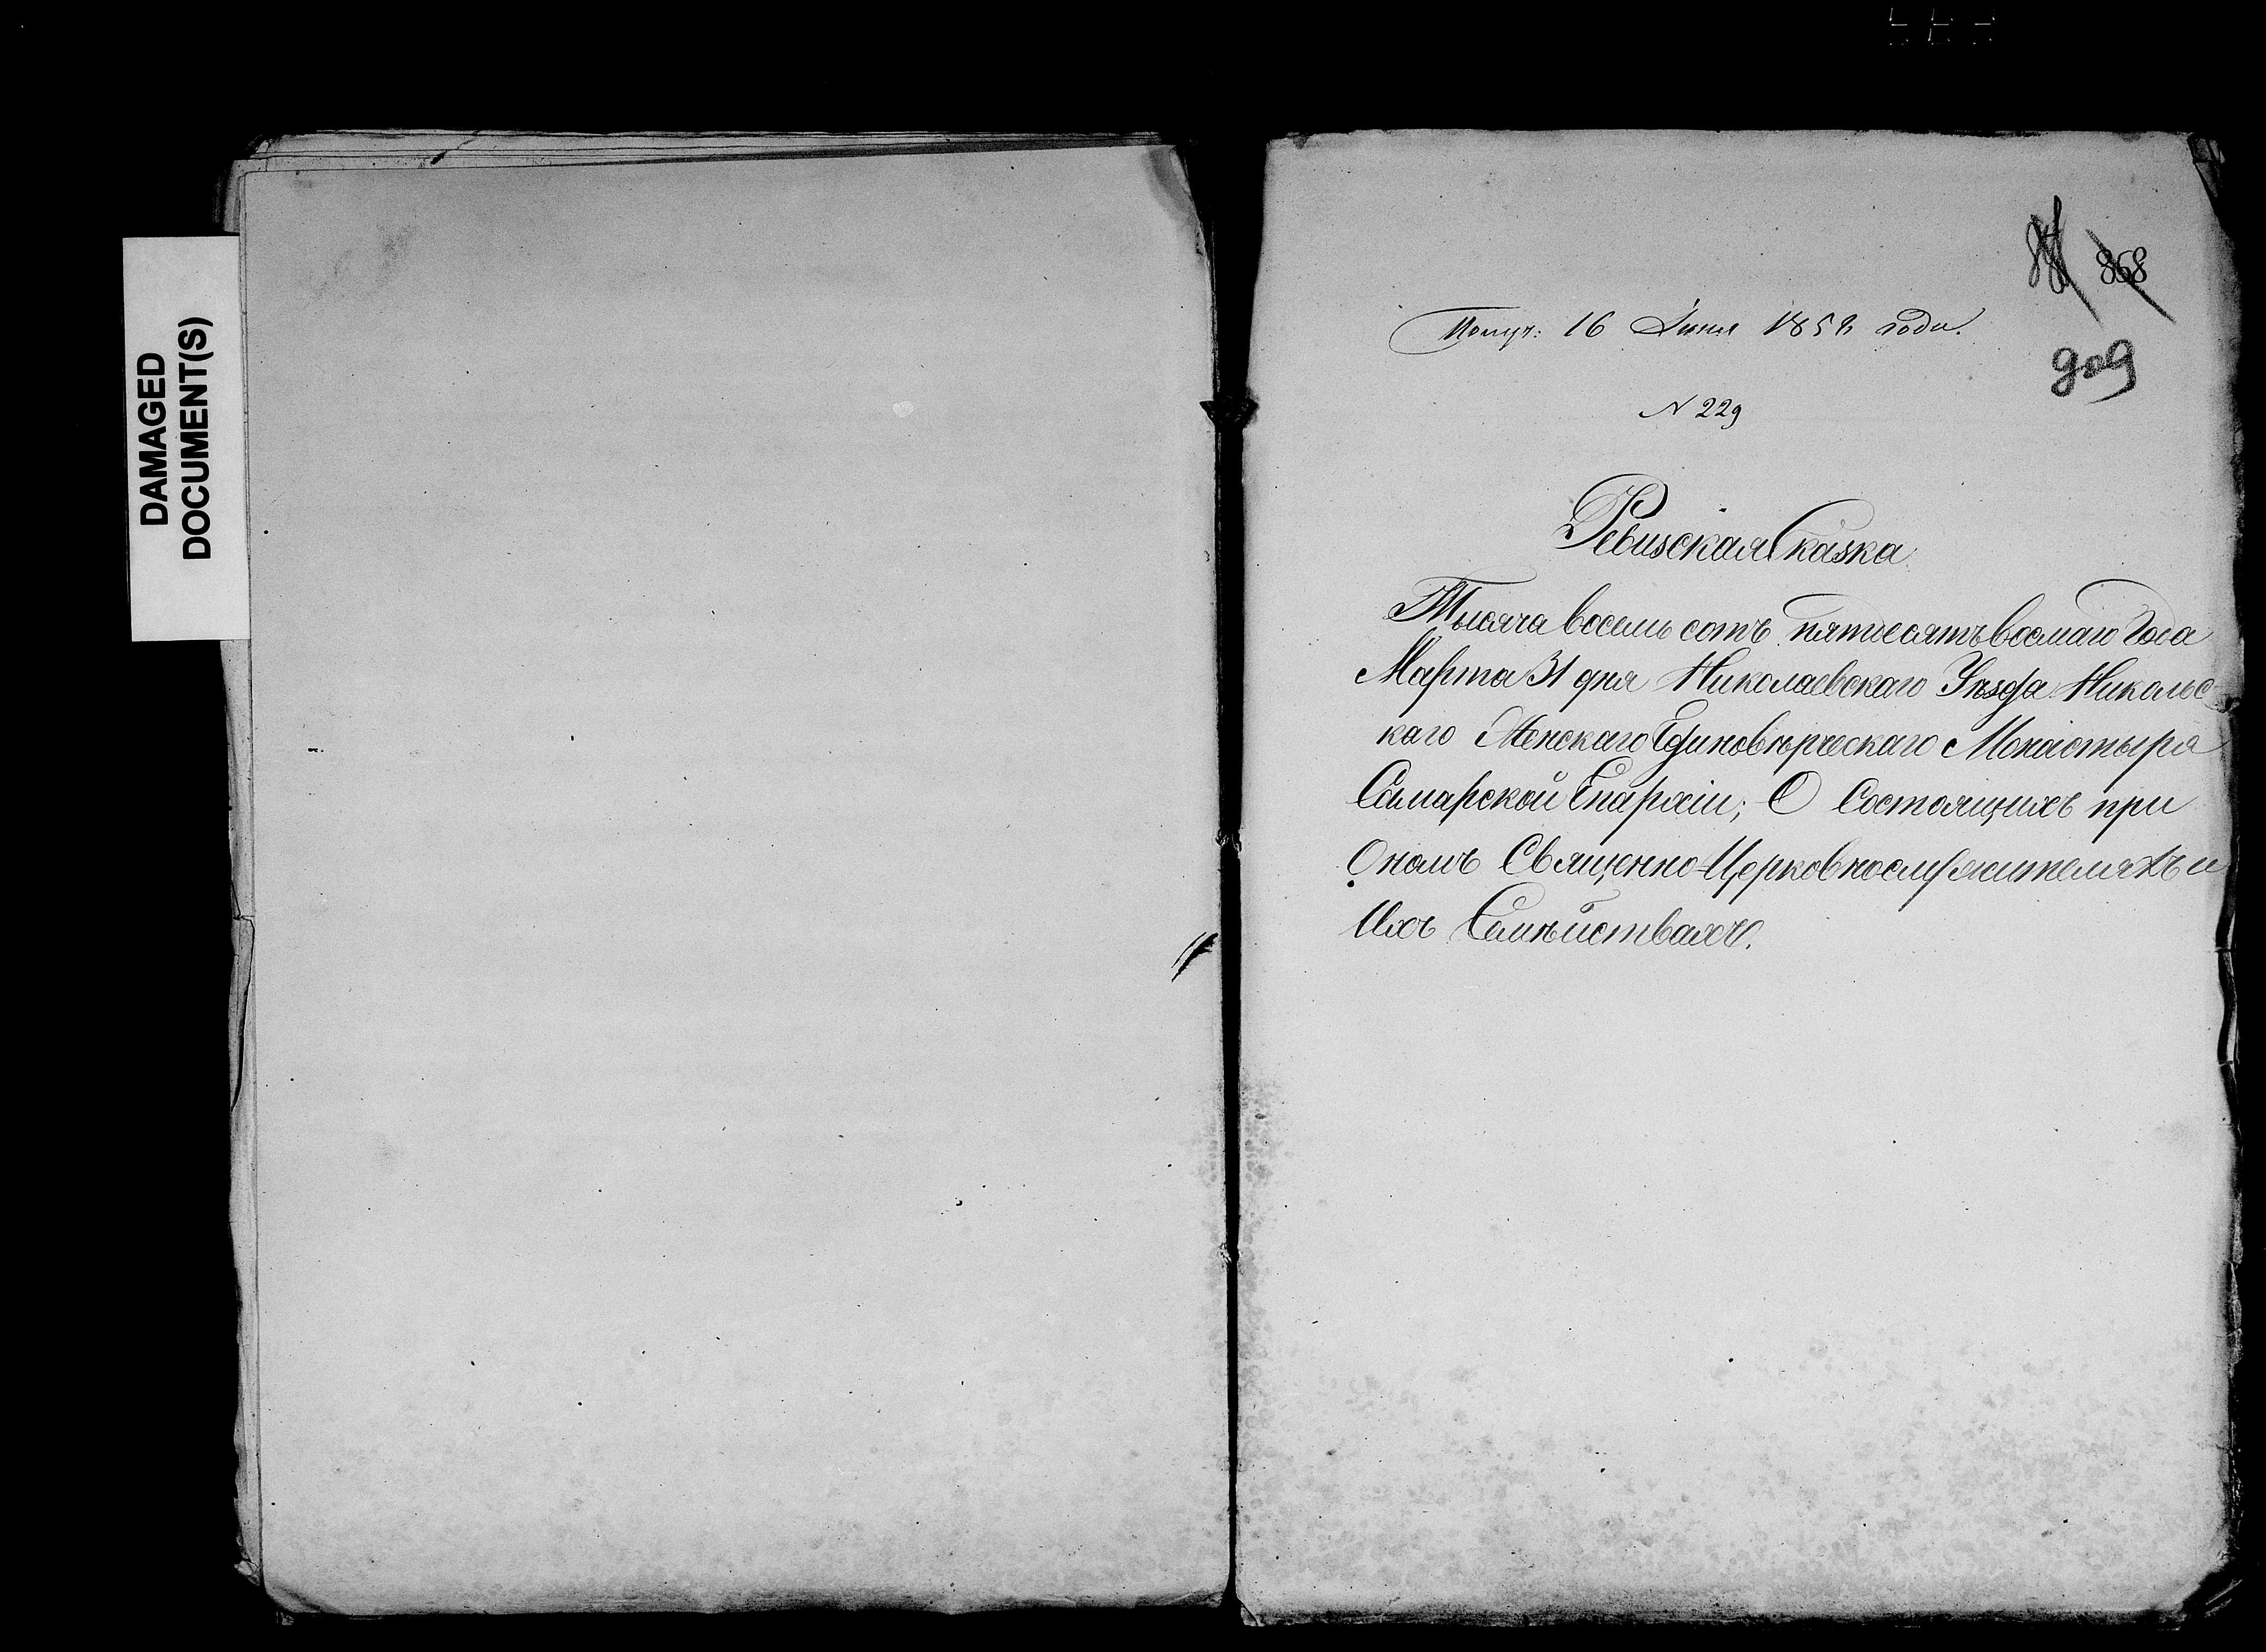 DAMAGED
DOCUMENT(S)
868
Получ: 16 Июня 1858 года.
909
N 229
Ревизская Сказка
Тысяча восемь сотъ пятдесятъ восмаго Года
Марта 31 дня Николаевскаго Уѣзда Никольс-
каго Женскаго Единовѣрческаго Монастыря
Самарской Епархіи; О Состоящихъ при
Ономъ Священно-Церковнослужителяхъ и
Ихъ Семѣйствахъ.